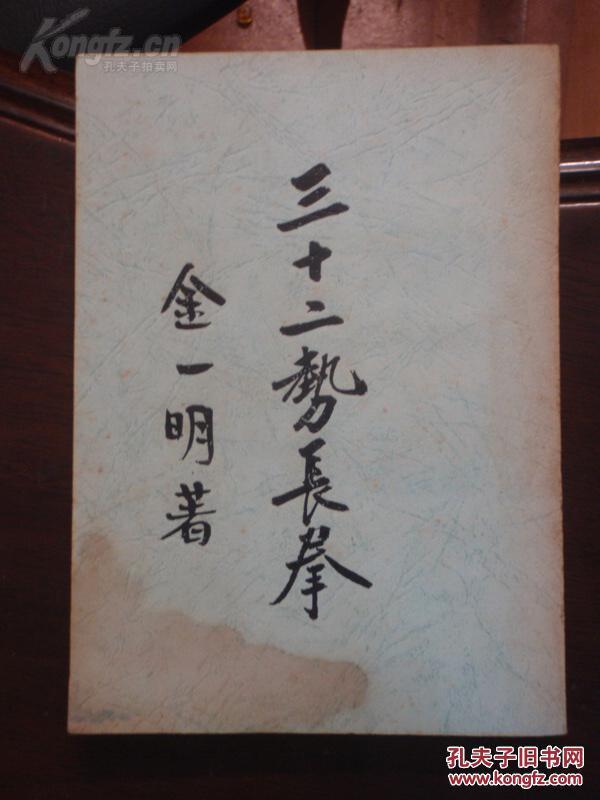 Kongfz.cn
孔夫子拍卖网
三十二勢長拳
金一明著
孔夫子旧书网
www.kongfz.com